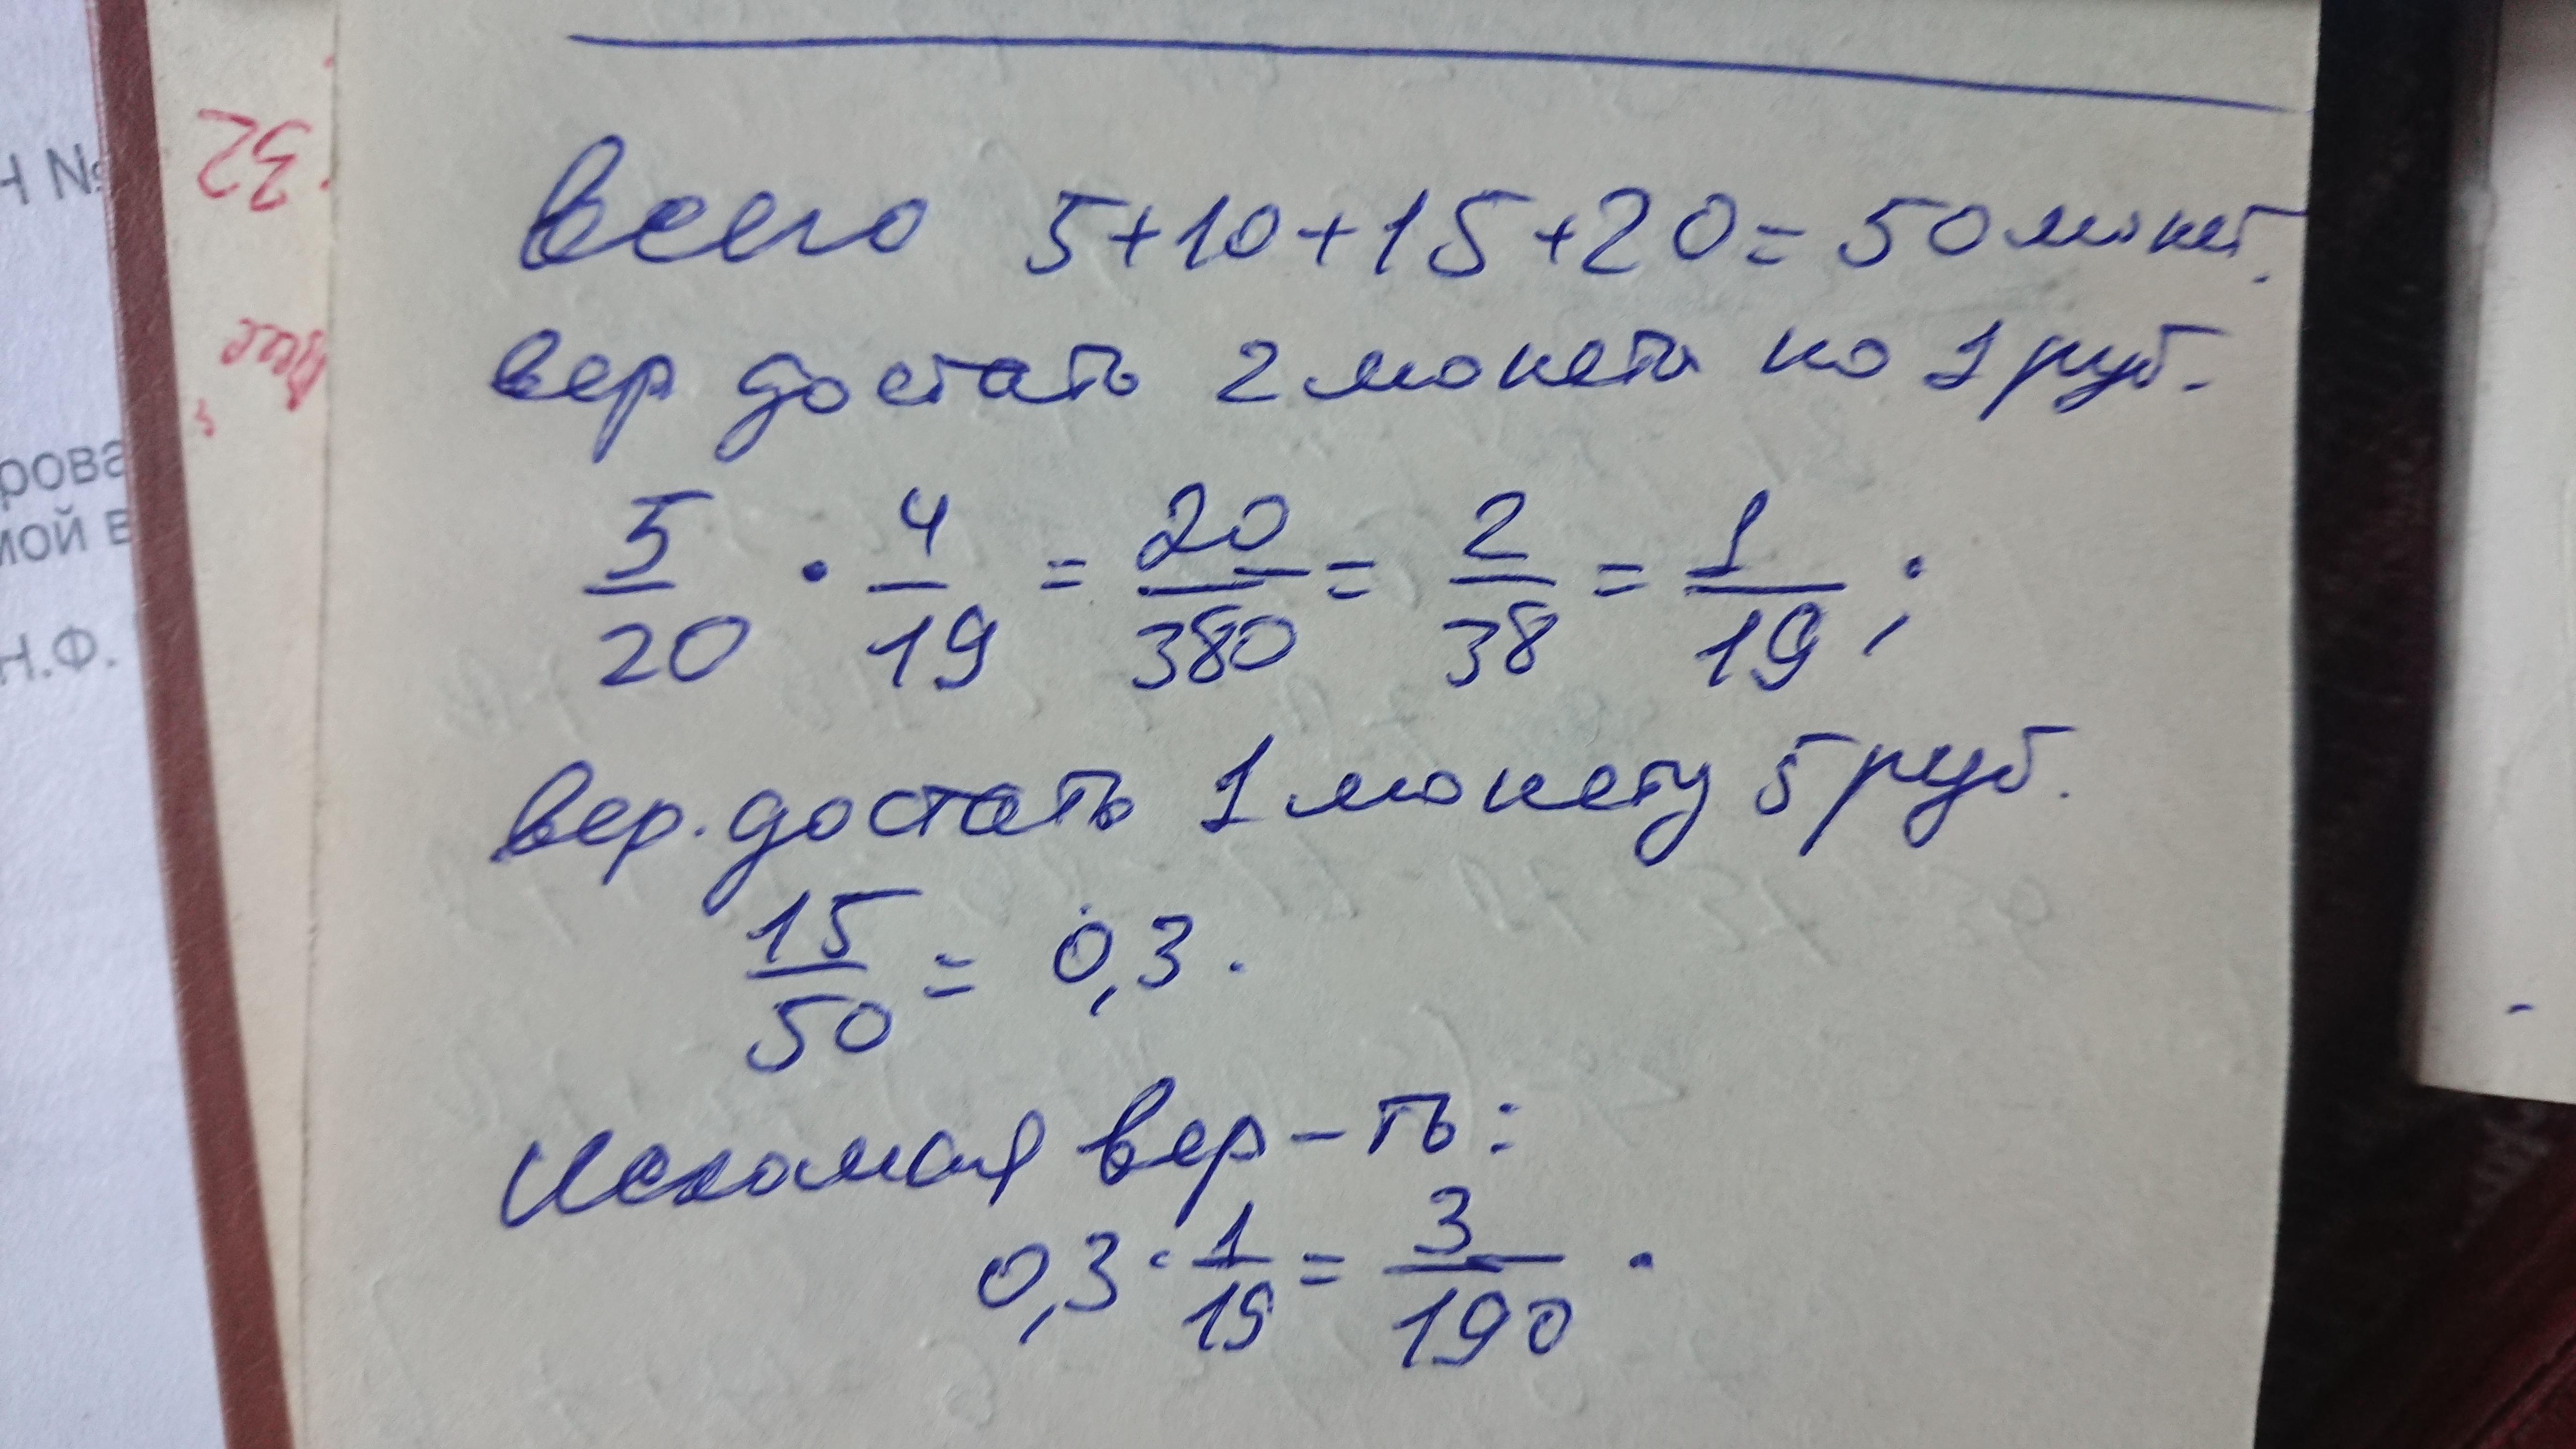 Н №
рова
мой в
Н.Ф.
32
Всего 5+10+15+20=50 монет.
вер достать 2 монеты по 1 руб.
5/20 · 4/19 = 20/380 = 2/38 = 1/19 ;
вер. достать 1 монету 5 руб.
15/50 = 0,3.
Искомая вер-ть:
0,3 · 1/19 = 3/190 .